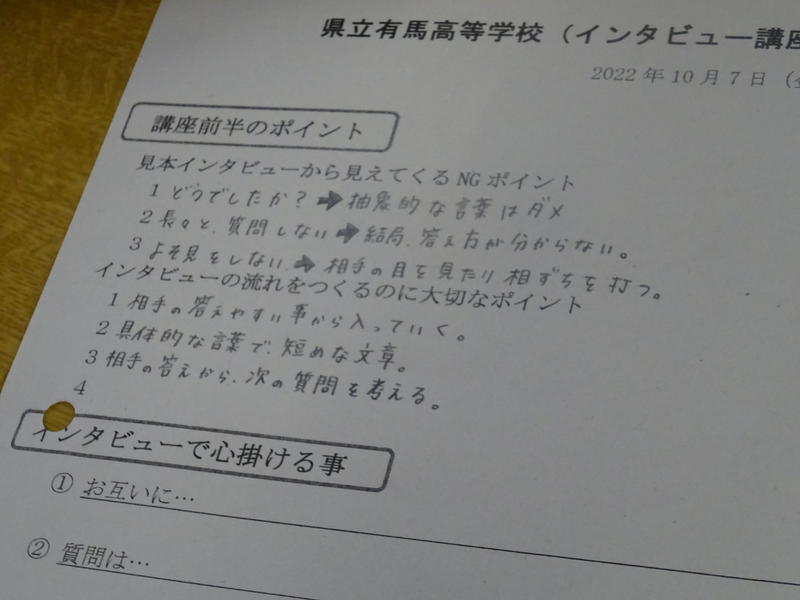 県立有馬高等学校（インタビュー講座
2022年10月7日（
講座前半のポイント
見本インタビューから見えてくるNGポイント
1 どうでしたか？➡抽象的な言葉はダメ
2 長々と、質問しない➡結局、答え方が分からない。
3 よそ見をしない、➡相手の目を見たり相ずちを打つ。
インタビューの流れをつくるのに大切なポイント
1 相手の答えやすい事から入っていく。
2 具体的な言葉で、短めな文章。
3 相手の答えから、次の質問を考える。
4
インタビューで心掛ける事
① お互いに…
② 質問は…